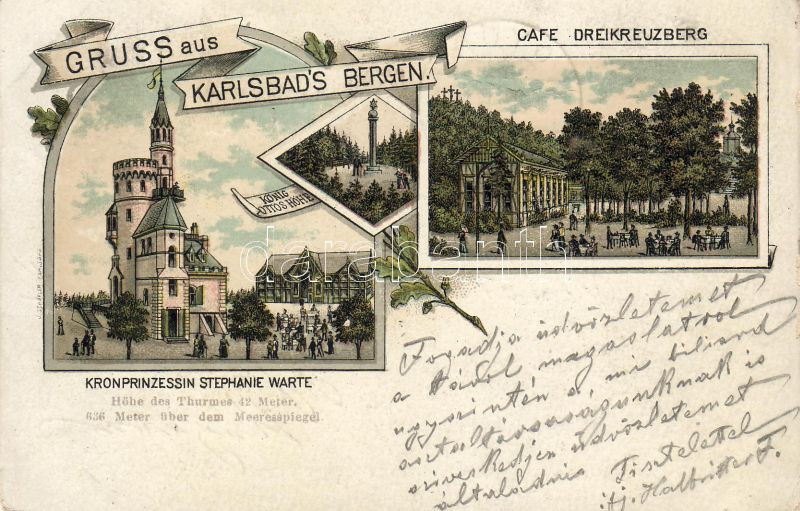 GRUSS aus
KARLSBAD'S BERGEN.
CAFE DREIKREUZBERG
KÖNIG
OTTOS HÖHE
KRONPRINZESSIN STEPHANIE WARTE
Höhe des Thurmes 42 Meter.
636 Meter über dem Meeresspiegel.
Fogadja üdvözletemet
a távol magaslatról
ugyszintén a mi biliard
asztaltársaságunknak is
sziveskedjen üdvözletemet
általadnia Tisztelettel
ifj. Halbritter F.
darabanth